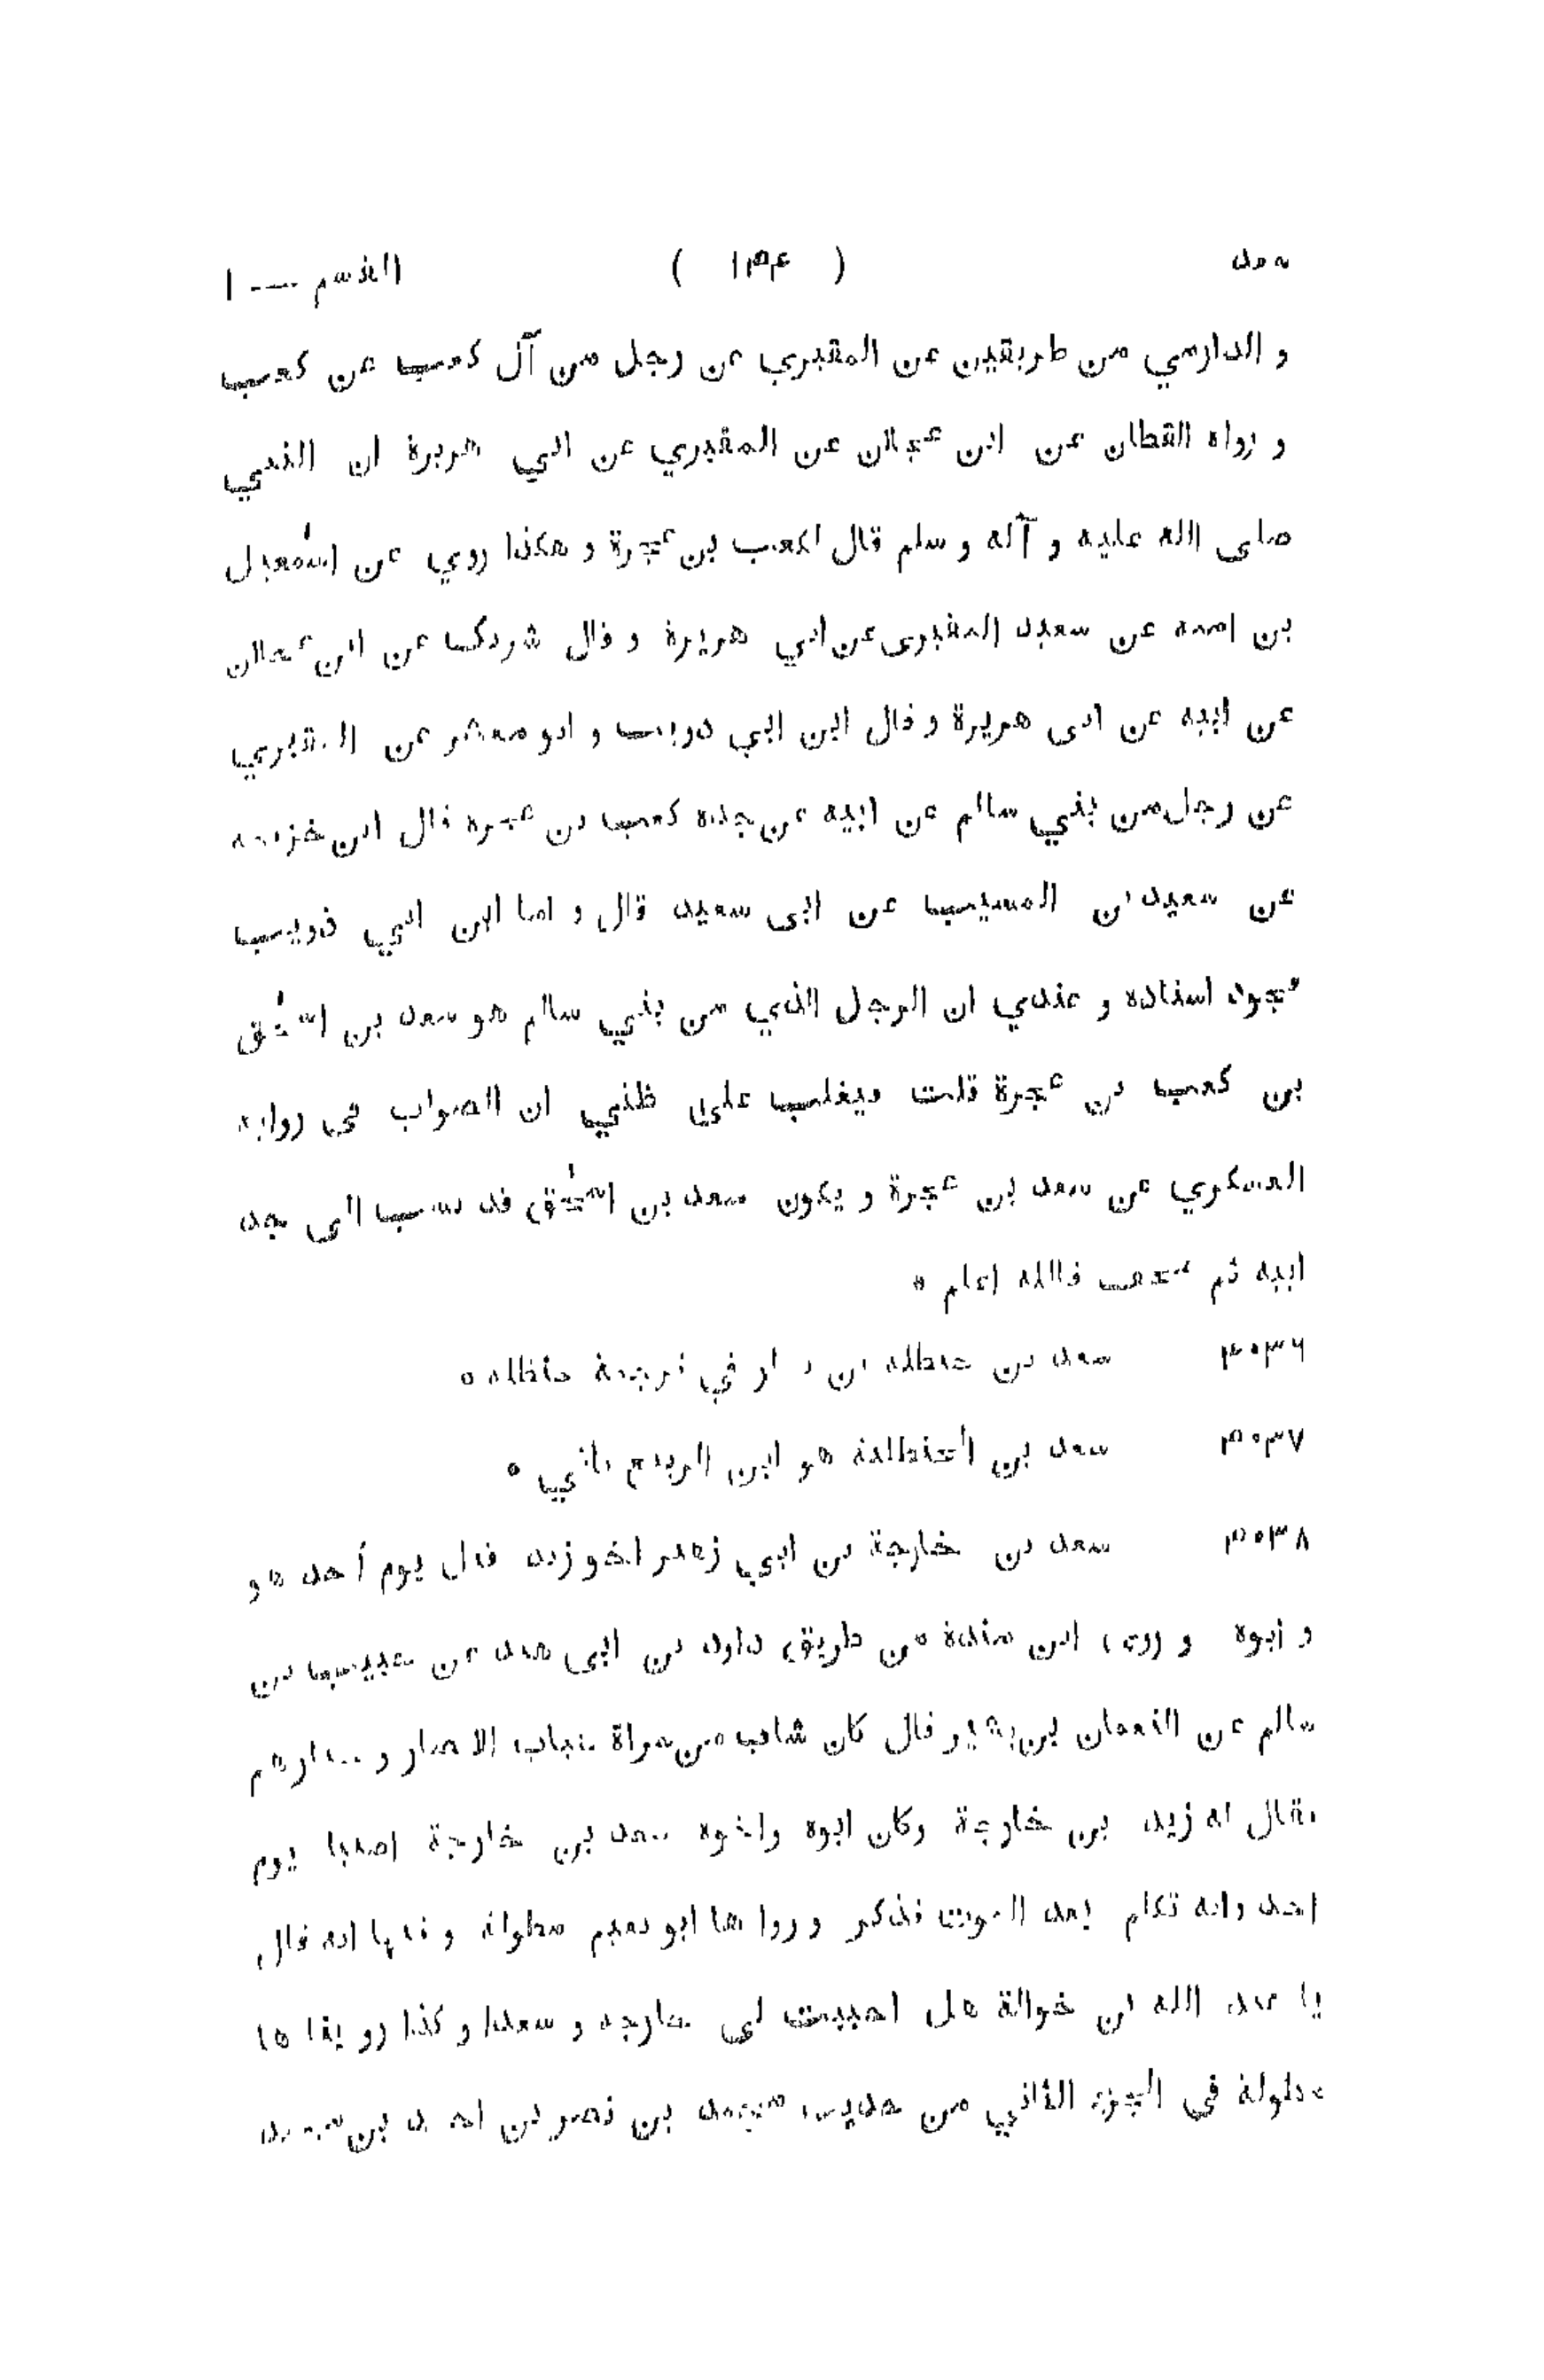 سعد ( ١٣٤ ) القسم — ١
و الدارمي من طريقين عن المقبري عن رجل من آل كعب عن كعب
و رواه القطان عن ابن عجلان عن المقبري عن ابي هريرة ان النبي
صلى الله عليه و آله و سلم قال لكعب بن عجرة و هكذا روي عن اسمعيل
بن اميه عن سعيد المقبرى عن ابي هريرة و قال شريك عن ابن عجلان
عن ابيه عن ابى هريرة و قال ابن ابي ذويب و ابو معشر عن المقبري
عن رجل من بني سالم عن ابيه عن جده كعب بن عجرة قال ابن خزيمه
عن سعيد بن المسيب عن ابى سعيد قال و اما ابن ابي ذويب
فجود اسناده و عندي ان الرجل الذي من بني سالم هو سعد بن اسحق
بن كعب بن عجرة قلت فيغلب على ظني ان الصواب في رواية
العسكري عن سعد بن عجرة و يكون سعد بن اسحق قد نسب الى جد
ابيه ثم صحف فالله اعلم *
٣٠٣٦ سعد بن حنظله بن في ترجمة حنظله *
٣٠٣٧ سعد بن الحنظلية هو ابن الربيع ياتي *
٣٠٣٨ سعد بن خارجة بن ابي زهير اخو زيد قتل يوم أحد هو
و ابوه و روى ابن مندة من طريق داود بن ابى هند عن حبيب بن
سالم عن النعمان بن بشير قال كان شاب من سراة شباب الانصار و خيارهم
يقال له زيد بن خارجة وكان ابوه واخوه سعد بن خارجة اصيبا يوم
احد وانه تكلم بعد الموت فذكر و رواها ابو نعيم مطولة و فيها انه قال
يا عبد الله بن خوالة هل احببت لي خارجه و سعدا و كذا رويناها
مطولة في الجزء الثاني من حديث محمد بن نصر بن احمد بن